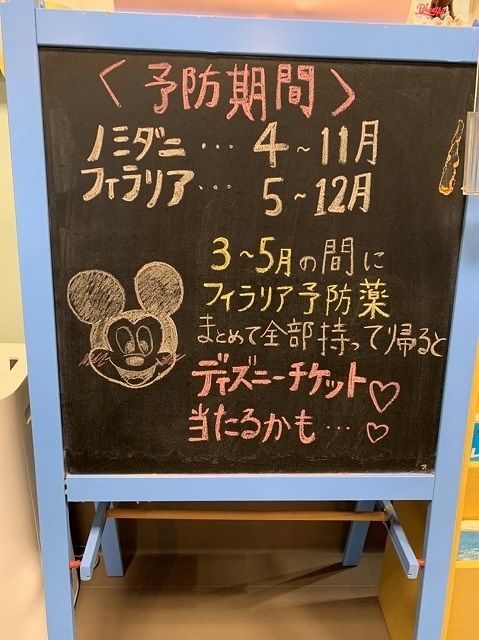 〈予防期間〉
ノミダニ…4~11月
フィラリア…5~12月
3~5月の間に
フィラリア予防薬
まとめて全部持って帰ると
ディズニーチケット♡
当たるかも…♡